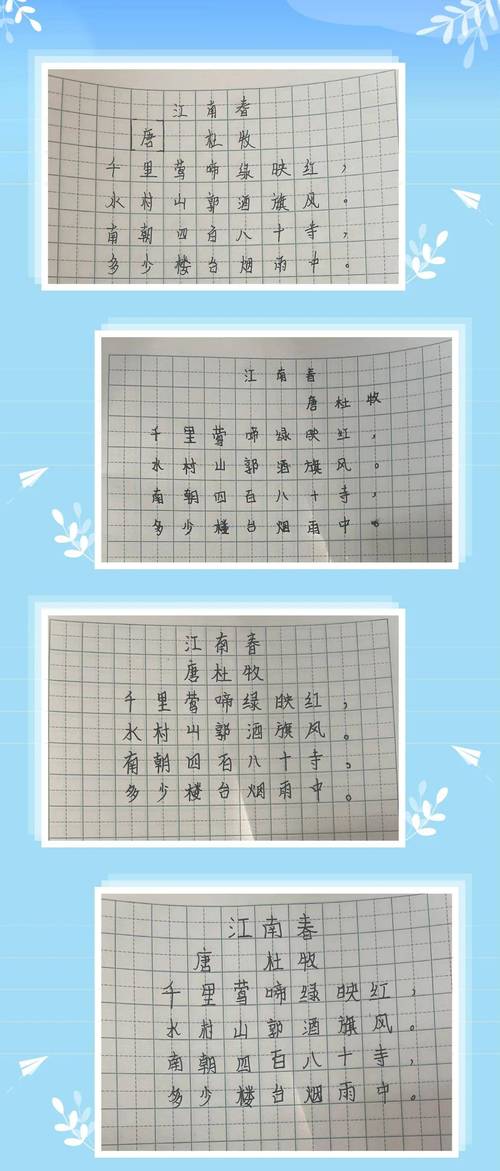 江南春
[唐] 杜牧
千里莺啼绿映红，
水村山郭酒旗风。
南朝四百八十寺，
多少楼台烟雨中。
江南春
唐杜牧
千里莺啼绿映红，
水村山郭酒旗风。
南朝四百八十寺，
多少楼台烟雨中。
江南春
唐杜牧
千里莺啼绿映红，
水村山郭酒旗风。
南朝四百八十寺，
多少楼台烟雨中。
江南春
唐 杜牧
千里莺啼绿映红，
水村山郭酒旗风。
南朝四百八十寺，
多少楼台烟雨中。